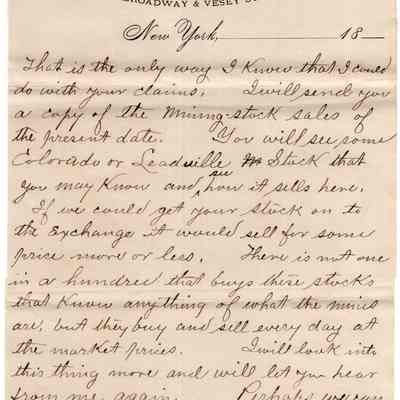 BROADWAY & VESEY
New York, 18
That is the only way I Know that I could
do with your claims. I will send you
a copy of the Mining-stock sales of
the present date. You will see some
Colorado or Leadville Stock that
you may Know and see how it sells here.
If we could get your stock on to
the Exchange it would sell for some
price more or less. There is not one
in a hundred that buys these stocks
that Know anything of what the mines
are, but they buy and sell every day at
the market prices. I will look into
this thing more and will let you hear
from me again. Perhaps we can